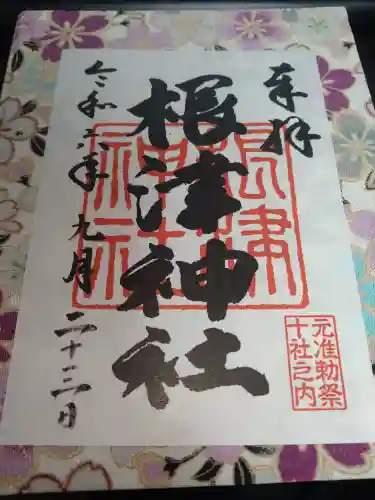 奉拝
根津神社
令和六年九月二十三日
根津
神社
元准勅祭
十社之内